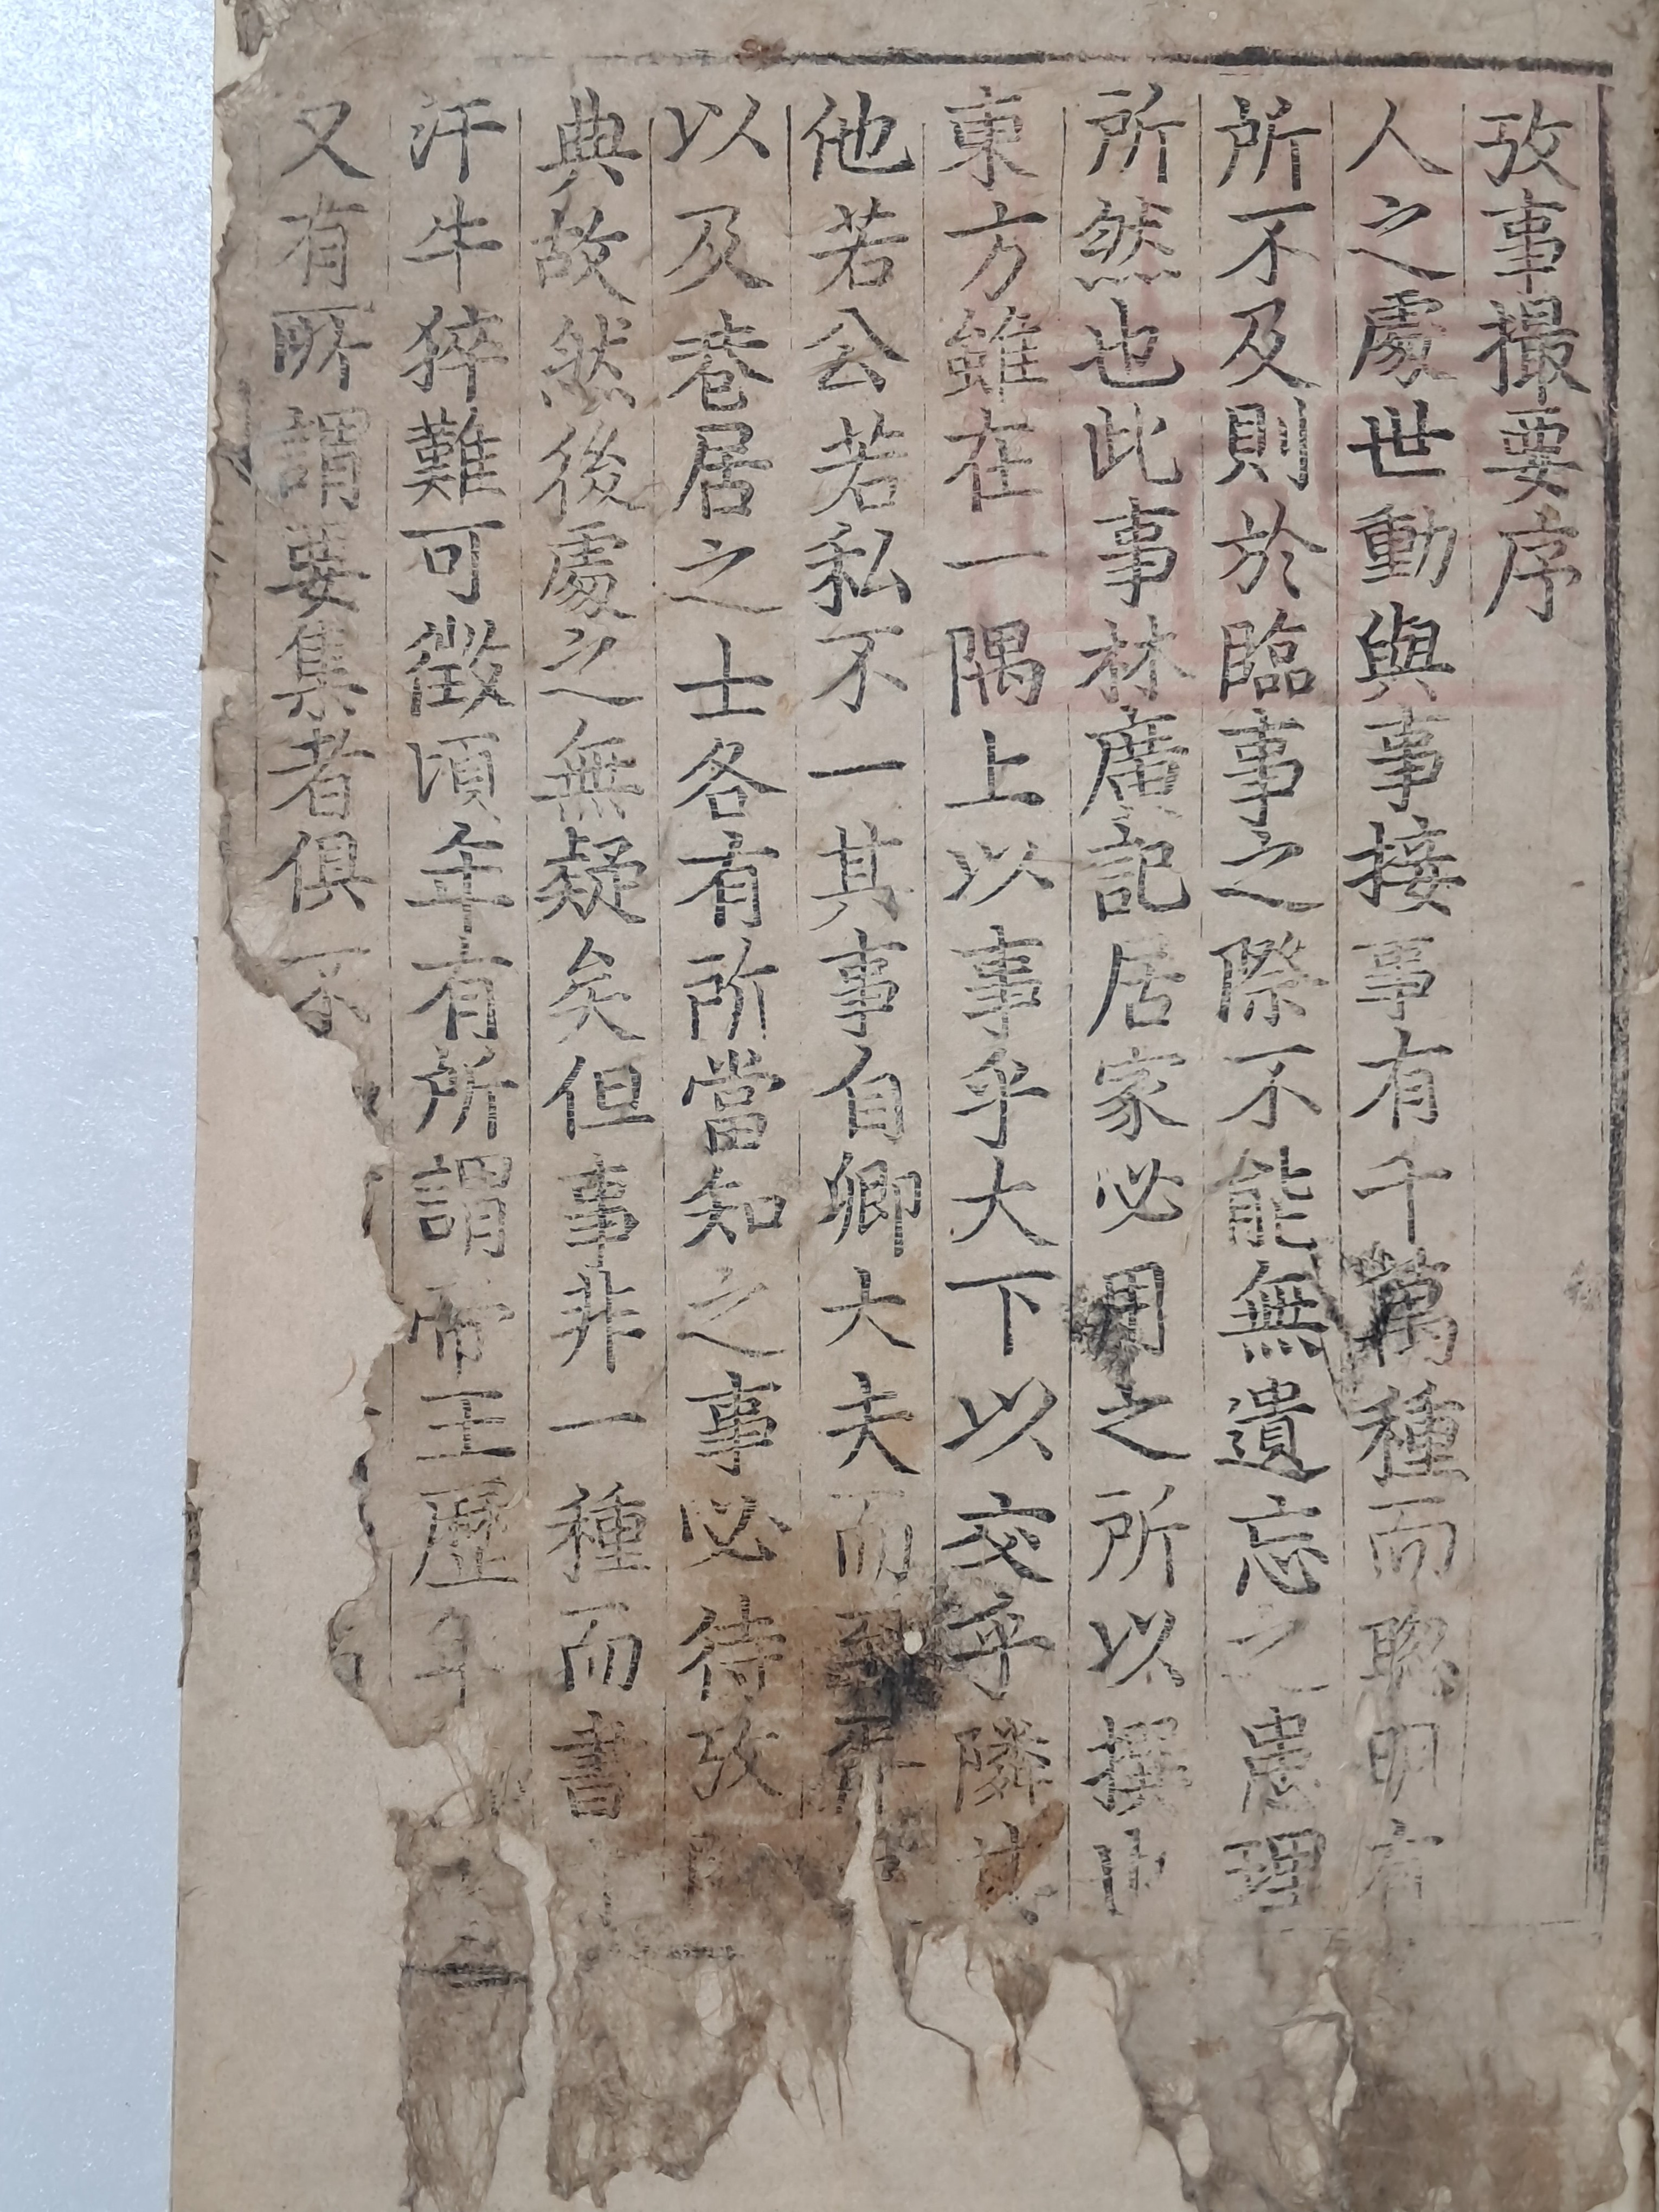 攷事撮要序
人之處世動與事接事有千萬種而聡明有
所不及則於臨事之際不能無遺忘之患理
所然也此事林廣記居家必用之所以撰也
東方雖在一隅上以事乎大下以交乎隣其
他若公若私不一其事自卿大夫而至
以及巷居之士各有所當知之事必待攷
典故然後處之無疑矣但事非一種而書
汗牛猝難可徵頃年有所謂帝王歷年
又有所謂要集者俱不